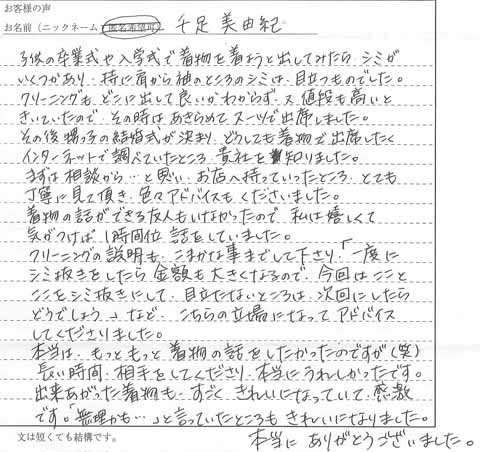 お客様の声
お名前（ニックネーム・匿名希望可） 千足 美由紀
子供の卒業式や入学式で着物を着ようと出してみたら、シミが
いくつかあり、特に肩から袖のところのシミは、目立つものでした。
クリーニングも、どこに出して良いかわからず、又、値段も高いと
きいていたので、その時はあきらめてスーツで出席しました。
その後、甥っ子の結婚式が決まり、どうしても着物で出席したく
インターネットで調べていたところ、貴社を知りました。
まずは相談から…と思い、お店へ持っていったところ、とても
丁寧に見て頂き、色々アドバイスもくださいました。
着物の話ができる友人もいなかったので、私は嬉しくて
気がつけば、1時間位話をしていました。
クリーニングの説明も、こまかな事までして下さり、「一度に
シミ抜きをしたら金額も大きくなるので、今回はここと
ここをシミ抜きにして、目立たないところは、次回にしたら
どうでしょう」など、こちらの立場になってアドバイス
してくださりました。
本当は、もっともっと着物の話をしたかったのですが（笑）
長い時間、相手をしてくださり、本当にうれしかったです。
出来あがった着物も、すごくきれいになっていて、感激
です。「無理かも…」と言っていたところもきれいになりました。
文は短くても結構です。
本当にありがとうございました。